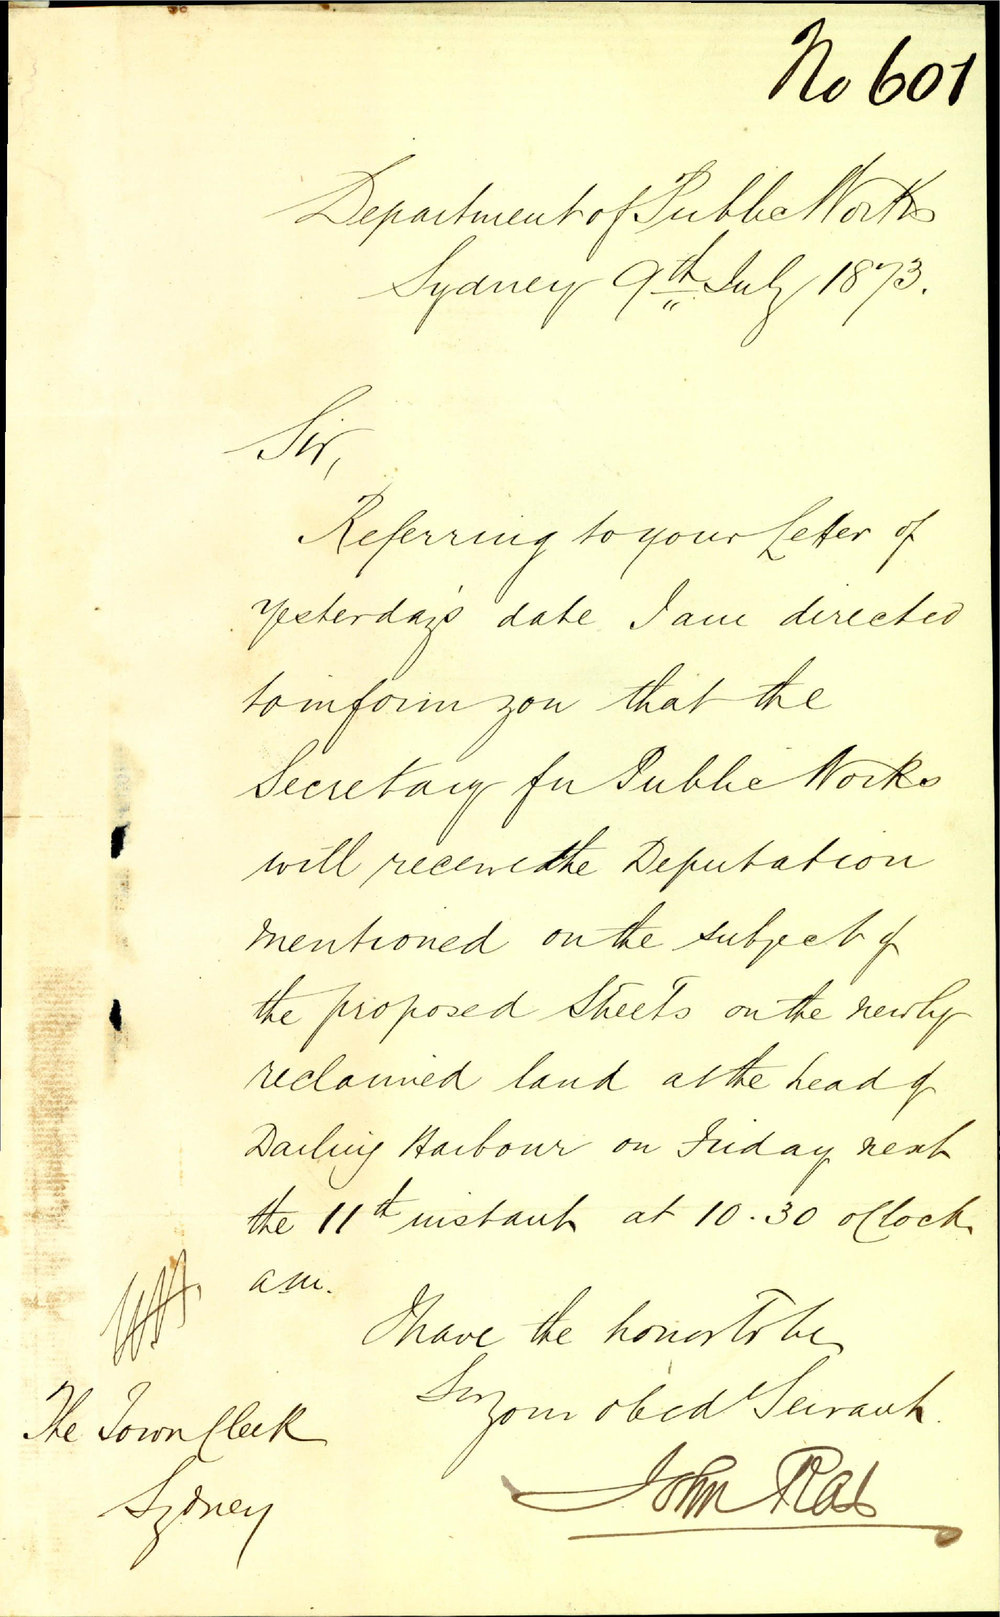 No 601
Department of Public Works
Sydney 9th July 1873.
Sir,
Referring to your Letter of
yesterday's date I am directed
to inform you that the
Secretary for Public Works
will receive the Deputation
mentioned on the subject of
the proposed Streets on the newly
reclaimed land at the head of
Darling Harbour on Friday next
the 11th instant at 10.30 oClock
am.
I have the honor to be
Sir
your obed Servant.
John Rae
The Town Clerk
Sydney